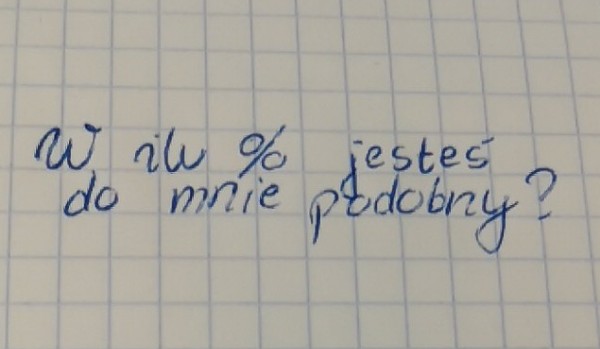 W ilu % jesteś
do mnie podobny?